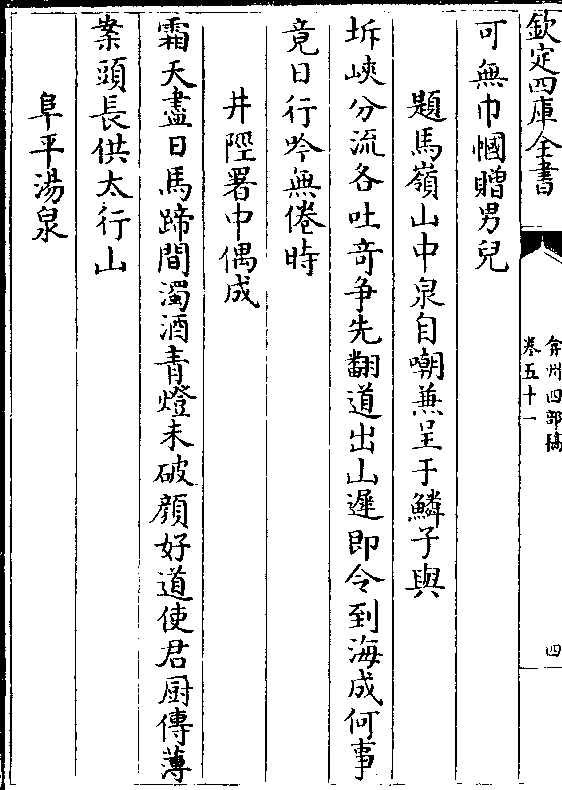 欽定四庫全書
弇州四部稿
卷五十一
四
可無巾幗贈男兒
題馬嶺山中泉自嘲兼呈于鱗子與
坼峽分流各吐奇争先翻道出山遲即令到海成何事
竟日行吟無倦時
井陘署中偶成
霜天盡日馬蹄間濁酒青燈未破顔好道使君厨傳薄
案頭長供太行山
阜平湯泉